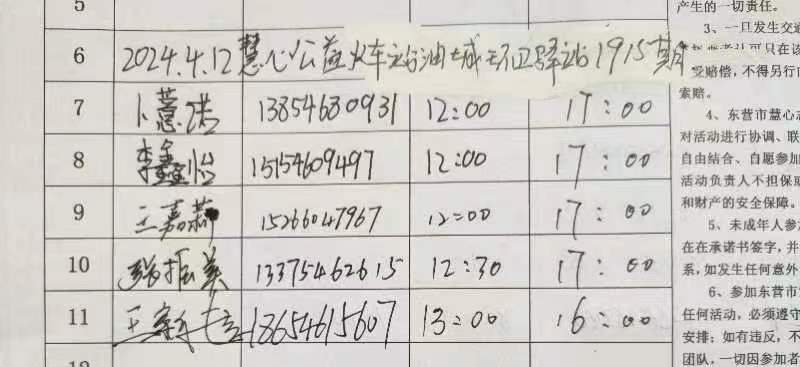 5
6 2024.4.12慧心公益火车站油城环卫驿站1915期
7 卜慧洪 13854680931 12:00 17:00
8 李鑫怡 15154609497 12:00 17:00
9 王嘉 15266047967 12:00 17:00
10 张振美 13375462615 12:30 17:00
11 王 18654615607 13:00 16:00
产生的一切责任。
3、一旦发生交通
可只在该
受赔偿，不得另行向
索赔。
4、东营市慧心志
对活动进行协调、联
自由结合、自愿参加
活动负责人不担保或
和财产的安全保障。
5、未成年人参加
在在承诺书签字，并
系，如发生任何意外
6、参加东营市
任何活动，必须遵守
安排；如有违反，不
团队，一切因参加者